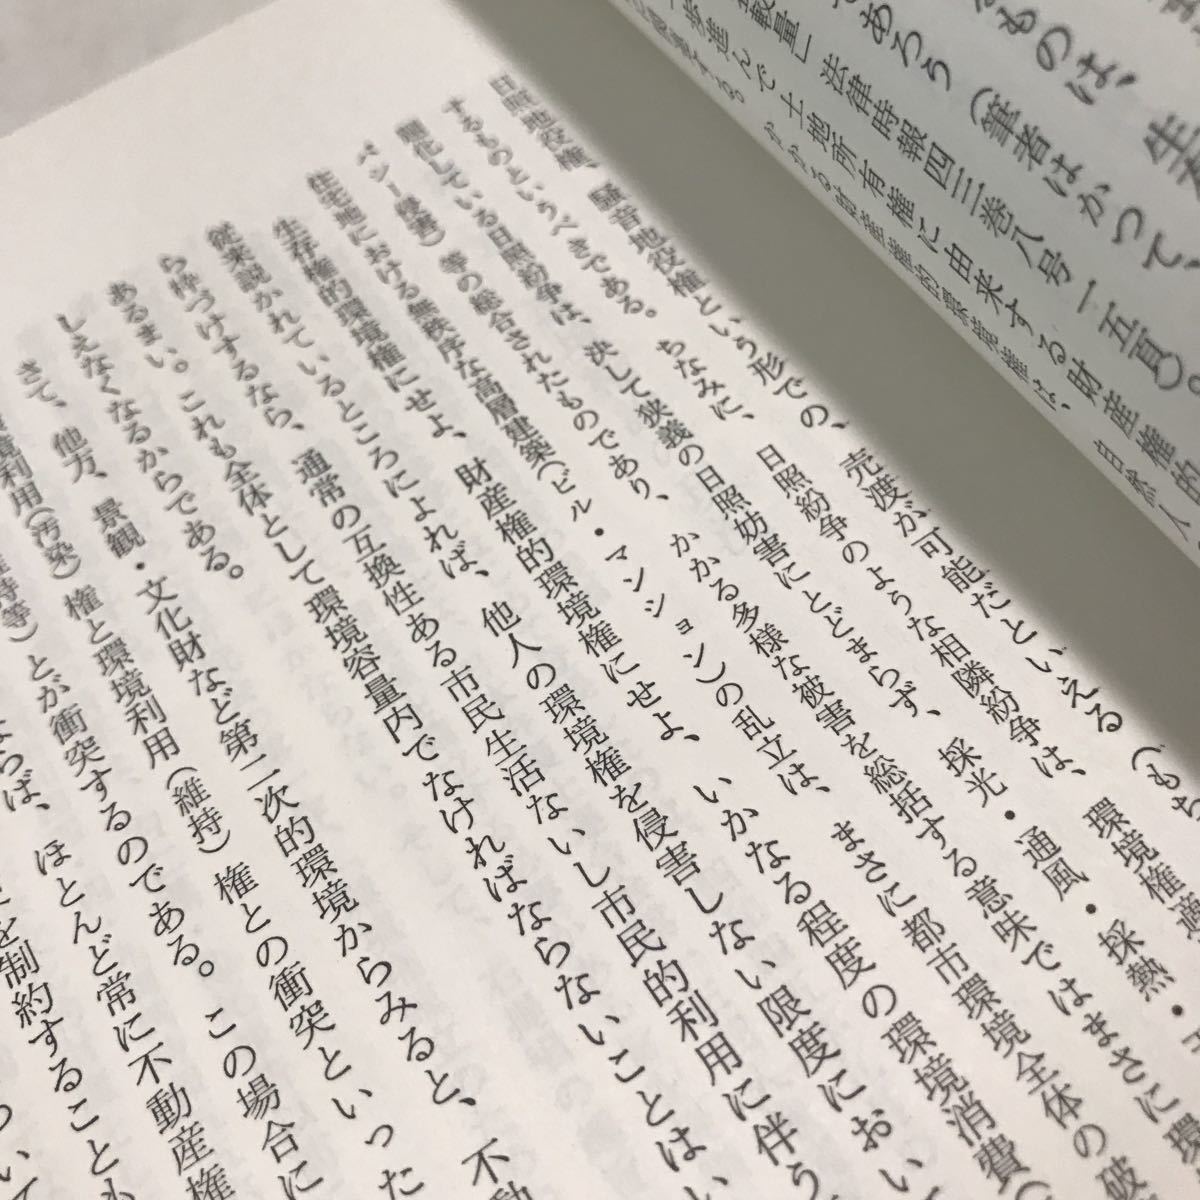 るものは、生
であろう（筆者はかつて、
較量」法律時報四三巻八号一五頁）。
一歩進んで土地所有権に由来する財産権的
かかる財産権的環境権は、自然人
日照地役権、騒音地役権という形での、売渡が可能だといえる（もち
するものというべきである。ちなみに、日照紛争のような相隣紛争は、環境権適
している日照紛争は、決して狭義の日照妨害にとどまらず、採光・通風・採熱・
バシー侵害）等の総合されたものであり、かかる多様な被害を総括する意味ではまさに環
住宅地における無秩序な高層建築（ビル・マンション）の乱立は、まさに都市環境全体の破
生存権的環境権にせよ、財産権的環境権にせよ、いかなる程度の環境消費（
従来説かれているところによれば、他人の環境権を侵害しない限度におい
ら枠づけするなら、通常の互換性ある市民生活ないし市民的利用に伴う
あるまい。これも全体として環境容量内でなければならないことはい
しえなくなるからである。
さて、他方、景観・文化財など第二次的環境からみると、不動
境利用（汚染）権と環境利用（維持）権との衝突といった
持等）とが衝突するのである。この場合に
らば、ほとんど常に不動産権
を制約することも